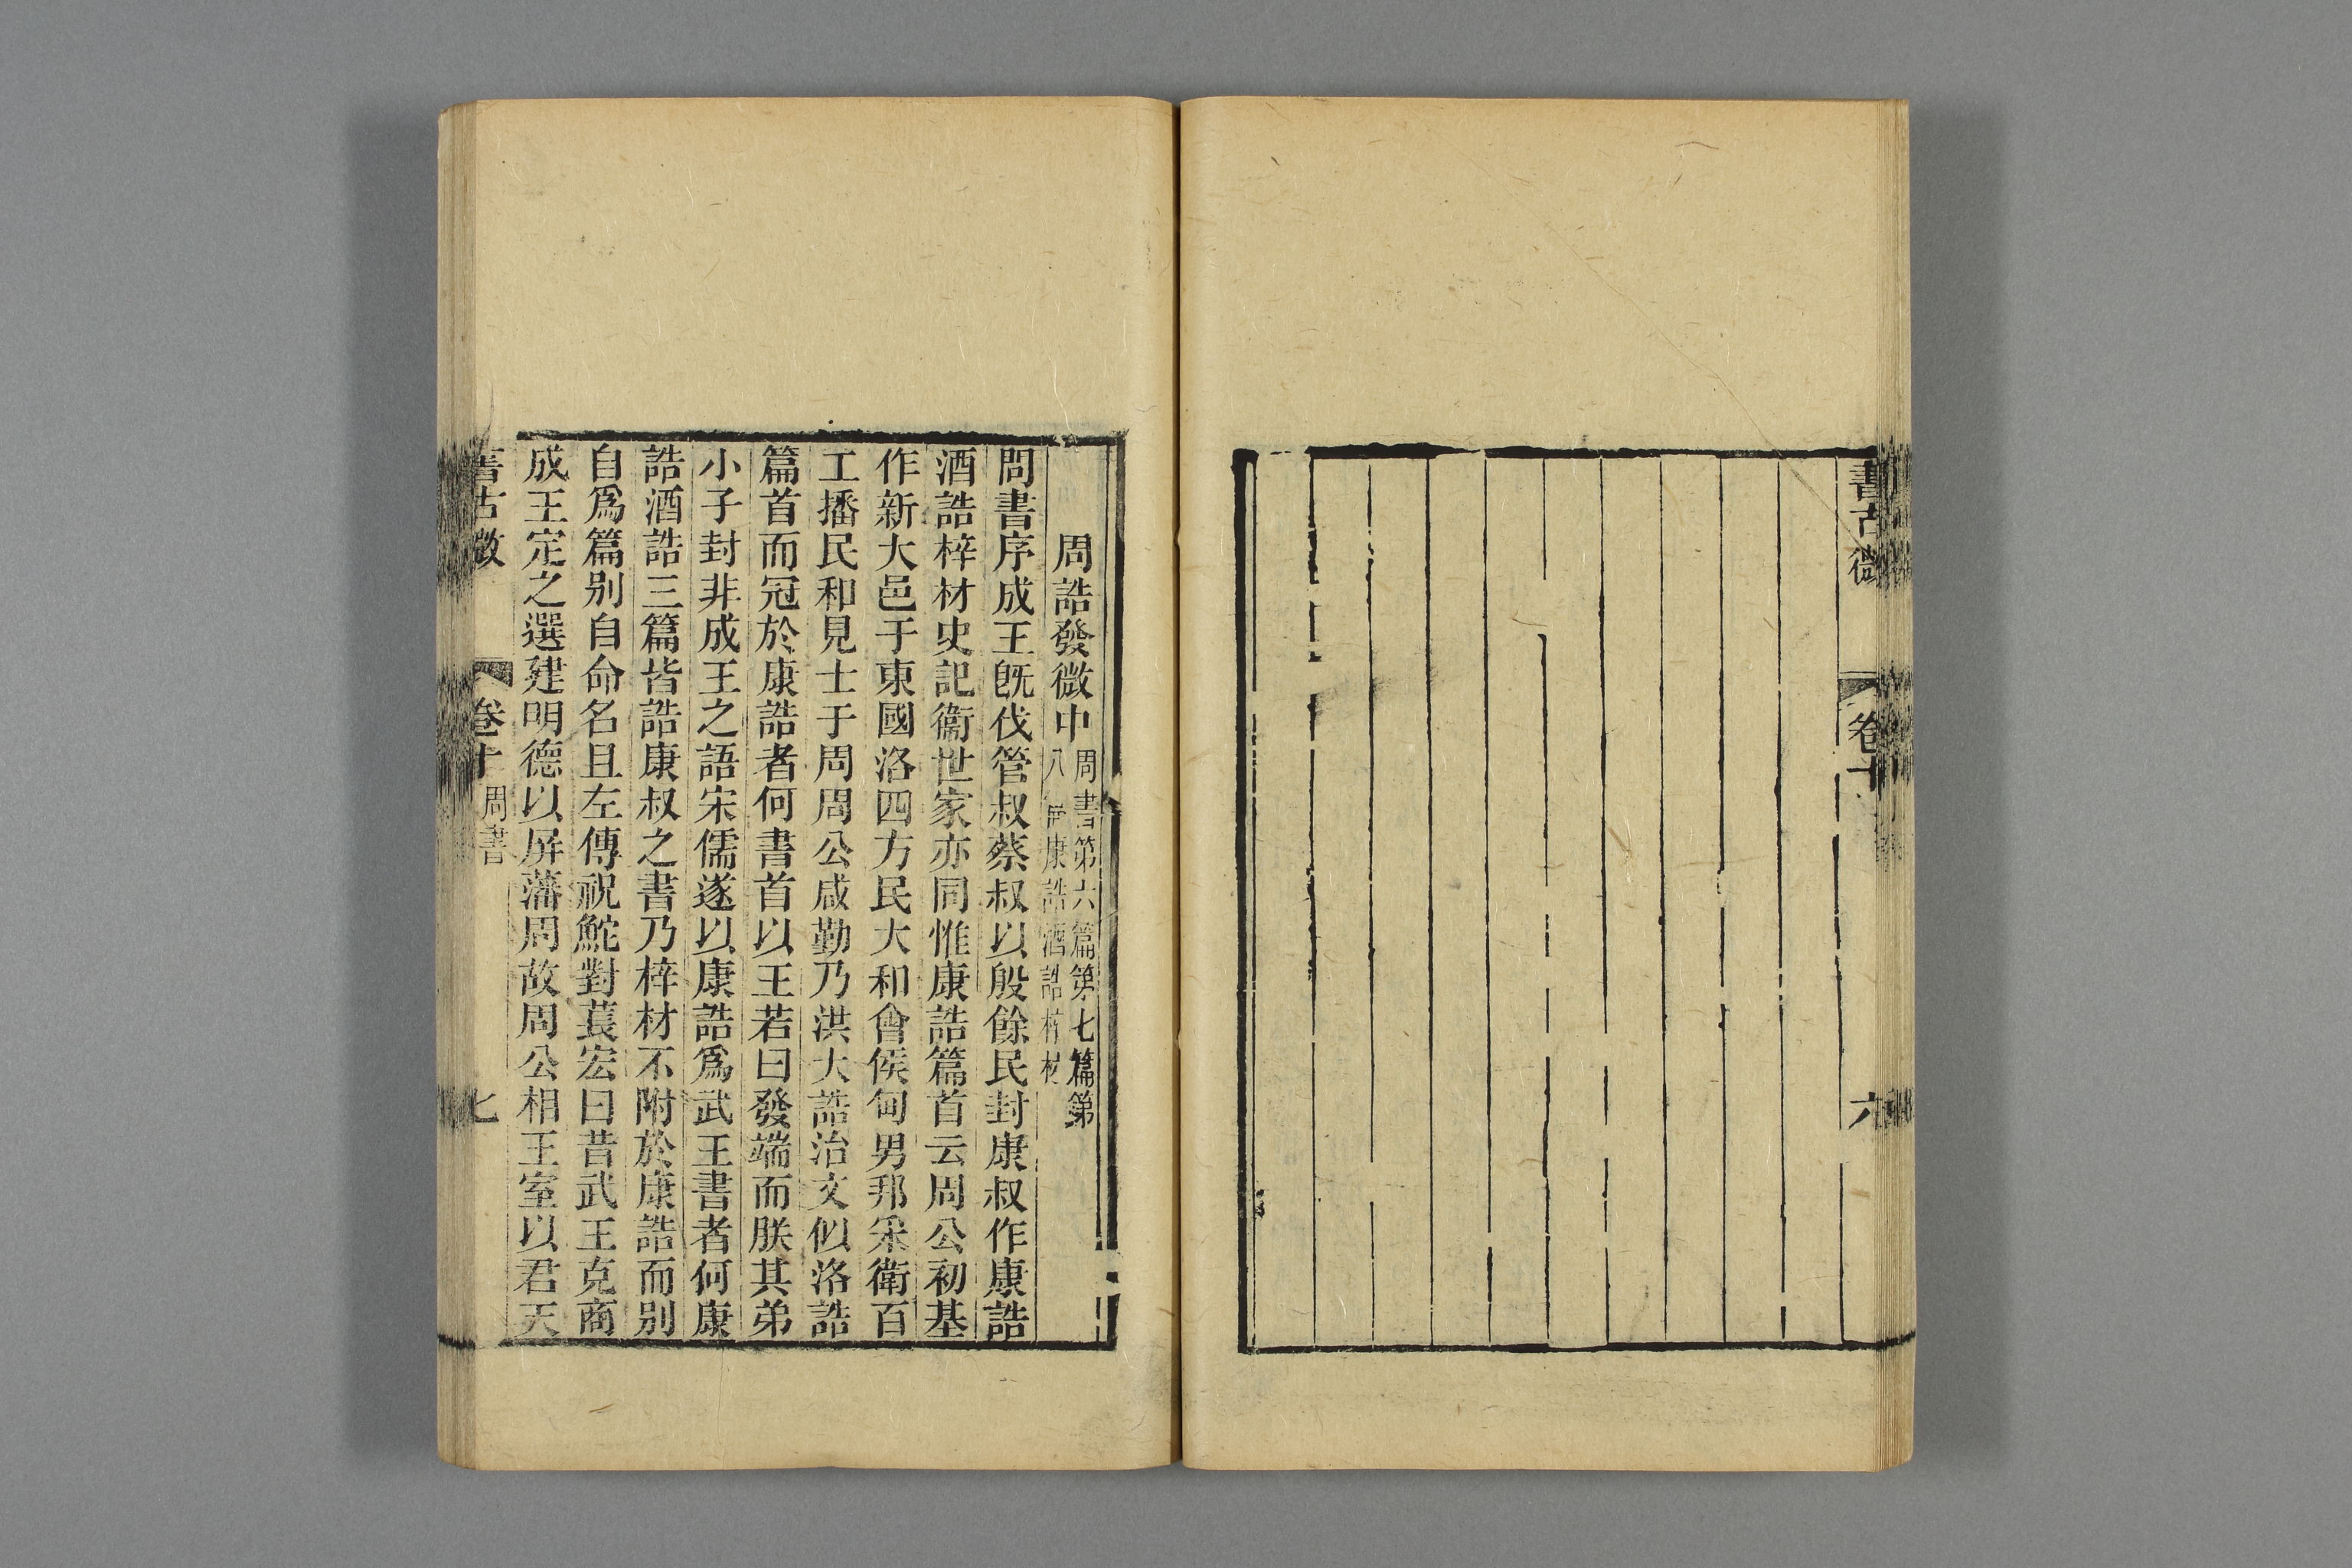 書古微
卷十
六
周誥發微中
周書第六篇第七篇第
八 康誥酒誥梓材
問書序成王旣伐管叔蔡叔以殷餘民封康叔作康誥
酒誥梓材史記衞世家亦同惟康誥篇首云周公初基
作新大邑于東國洛四方民大和會侯甸男邦采衛百
工播民和見士于周周公咸勤乃洪大誥治文似洛誥
篇首而冠於康誥者何書首以王若曰發端而朕其弟
小子封非成王之語宋儒遂以康誥爲武王書者何康
誥酒誥三篇皆誥康叔之書乃梓材不附於康誥而别
自爲篇别自命名且左傳祝鮀對萇宏曰昔武王克商
成王定之選建明德以屏藩周故周公相王室以君天
書古微
卷十
周書
七